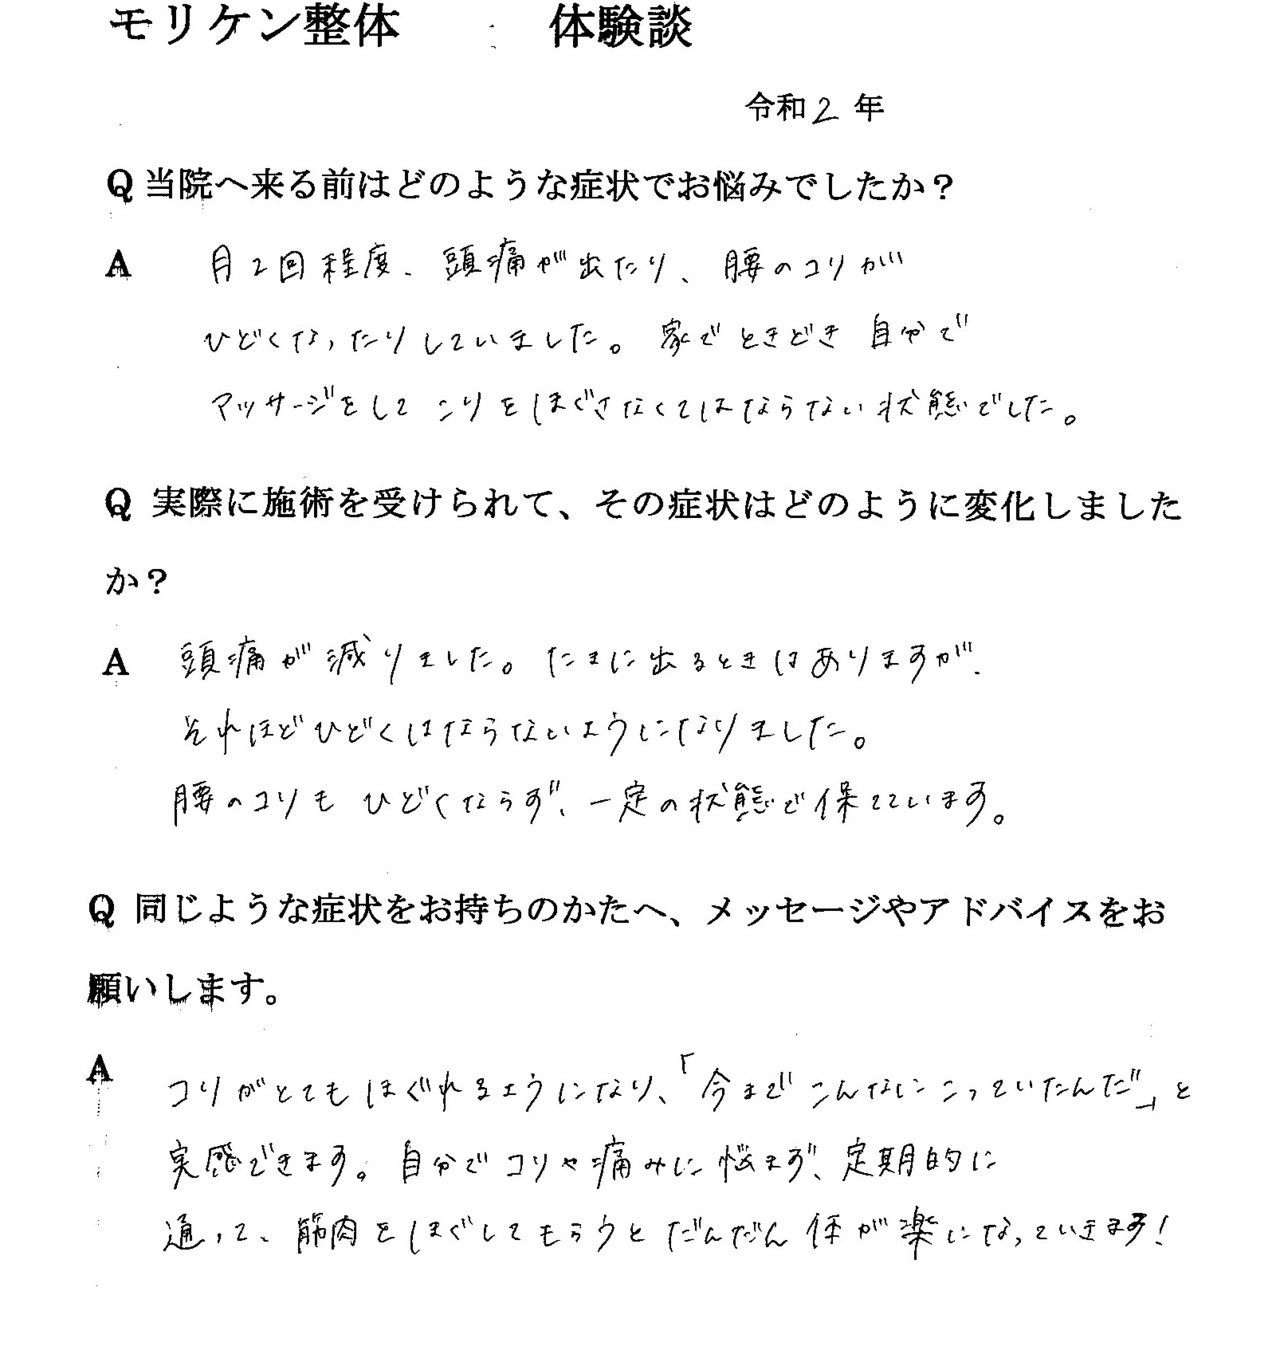 モリケン整体 体験談
令和2年
Q当院へ来る前はどのような症状でお悩みでしたか？
A 月2回程度、頭痛が出たり、腰のコリが
ひどくなったりしていました。家でときどき自分で
マッサージをして こりをほぐさなくてはならない状態でした。
Q 実際に施術を受けられて、その症状はどのように変化しました
か？
A 頭痛が減りました。たまに出るときはありますが、
それほどひどくはならないようになりました。
腰のコリも ひどくならず、一定の状態で保てています。
Q 同じような症状をお持ちのかたへ、メッセージやアドバイスをお
願いします。
A コリがとてもほぐれるようになり、「今までこんなにこっていたんだ」と
実感できます。自分でコリや痛みに悩まず、定期的に
通って、筋肉をほぐしてもらうとだんだん体が楽になっていきます！